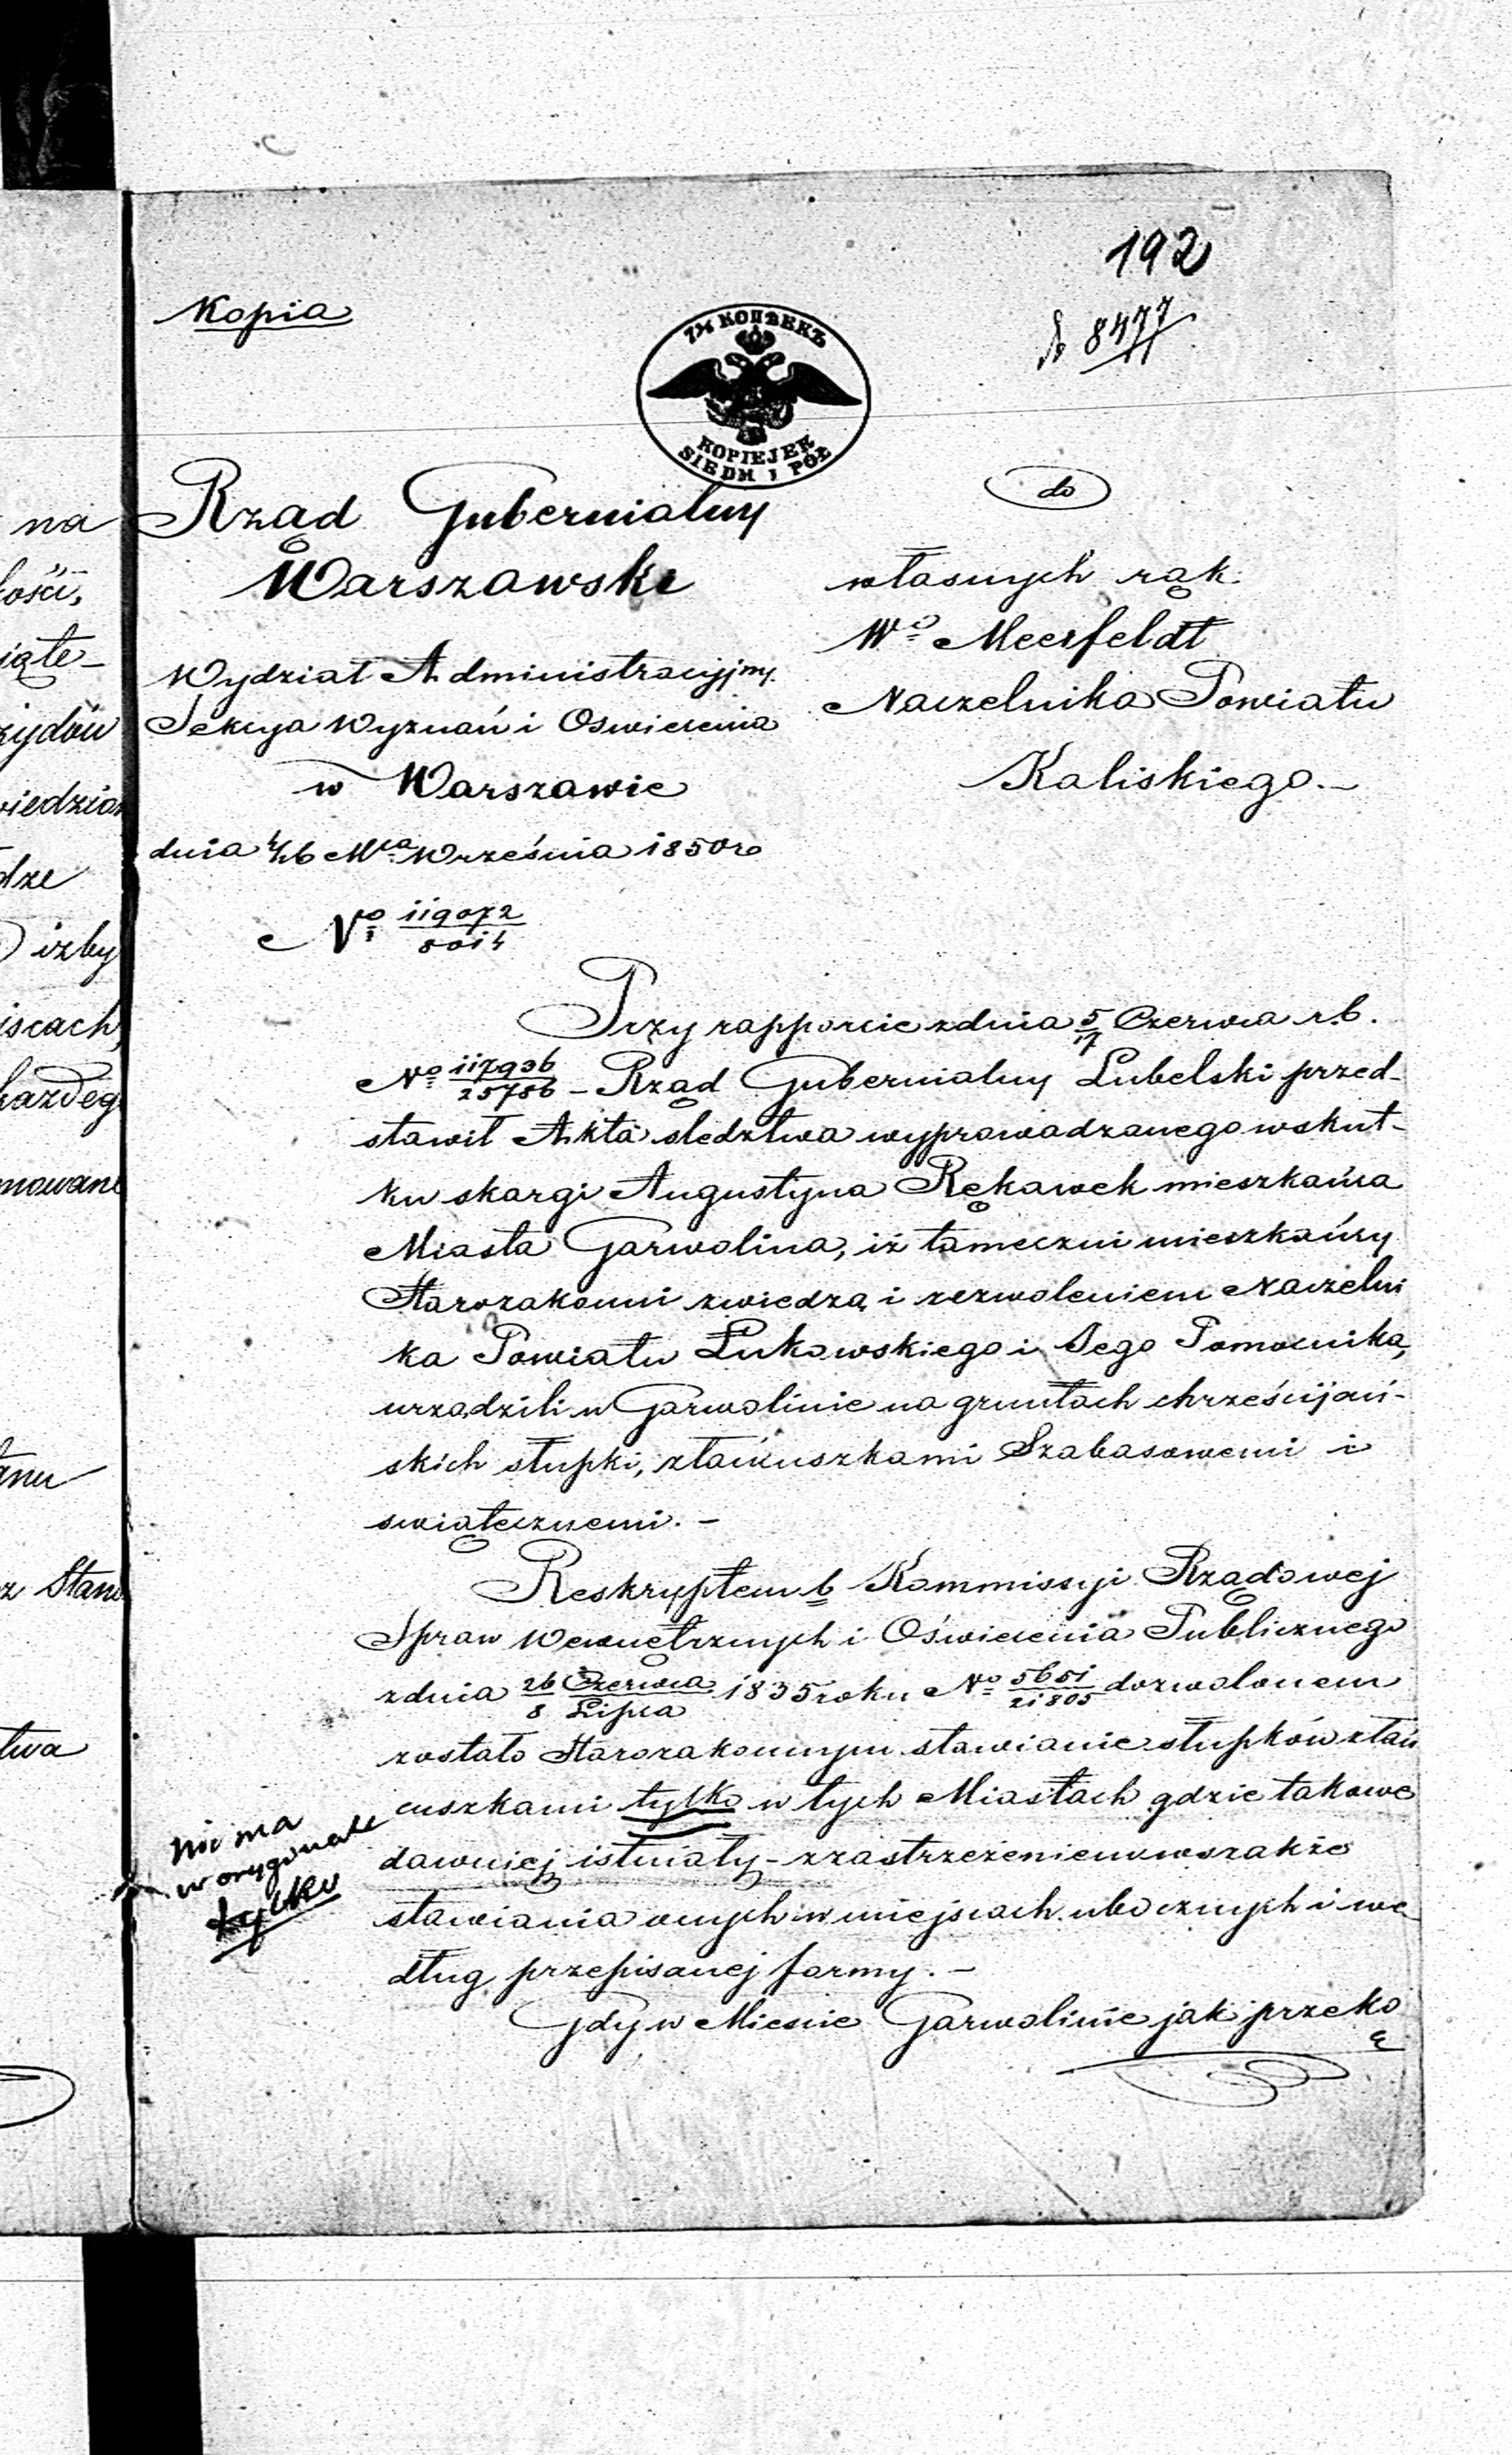 192
№ 8477
Kopia
7½ КОПѢЕКЪ
KOPIEJEK
SIEDM I PÓŁ
Rząd Gubernialny
Warszawski
Wydział Administracyjny
Sekcya Wyznań i Oswiecenia
w Warszawie
dnia 4/16 Mca Września 1850 ro
No 119072/8014
do
własnych rąk
Wo Meerfeldt
Naczelnika Powiatu
Kaliskiego.-
Przy rapporcie z dnia 5/17 Czerwca r.b.
No 117936/25786 - Rząd Gubernialny Lubelski przed-
stawił Akta sledztwa wyprowadzanego wskut-
ku skargi Augustyna Rękawek mieszkańca
Miasta Garwolina, iż tameczni mieszkańcy
Starozakonni z wiedzą i zezwoleniem Naczelni
ka Powiatu Łukowskiego i Jego Pomocnika,
urządzili w Garwolinie na gruntach chrześcijań-
skich słupki, z łańcuszkami Szabasowemi i
swiątecznemi. -
Reskryptem b. Kommissyi Rządowej
Spraw Wewnętrznych i Oświecenia Publicznego
z dnia 26 Czerwca/8 Lipca 1835 roku No 5651/21805 dozwolonem
zostało Starozakonnym stawianie słupków z łań
cuszkami tylko w tych Miastach gdzie takowe
dawniej istniały - z zastrzeżeniem wszakże
stawiania onych w miejscach ubocznych i we
dług przepisanej formy. -
Gdy w Miescie Garwolinie jak przeko
nie ma
w orygonale
tylko
na
łości,
iąte-
żydów
wiedzia
dze
izby
iscach,
każdeg
mowane
anu
z Stanu
twa